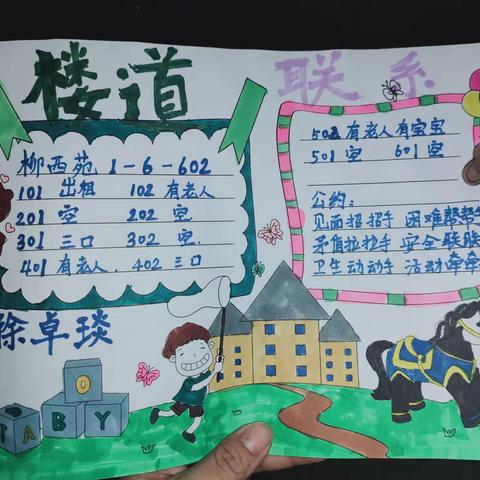 楼道
联系
柳西苑 1-6-602
101 出租 102 有老人
201 空 202 空
301 三口 302 空
401 有老人 402 三口
502 有老人有宝宝
501 空 601 空
公约:
见面招招手 困难帮帮
矛盾拉拉手 安全联联
卫生动动手 活动牵牵
徐卓琰
O
T A B Y